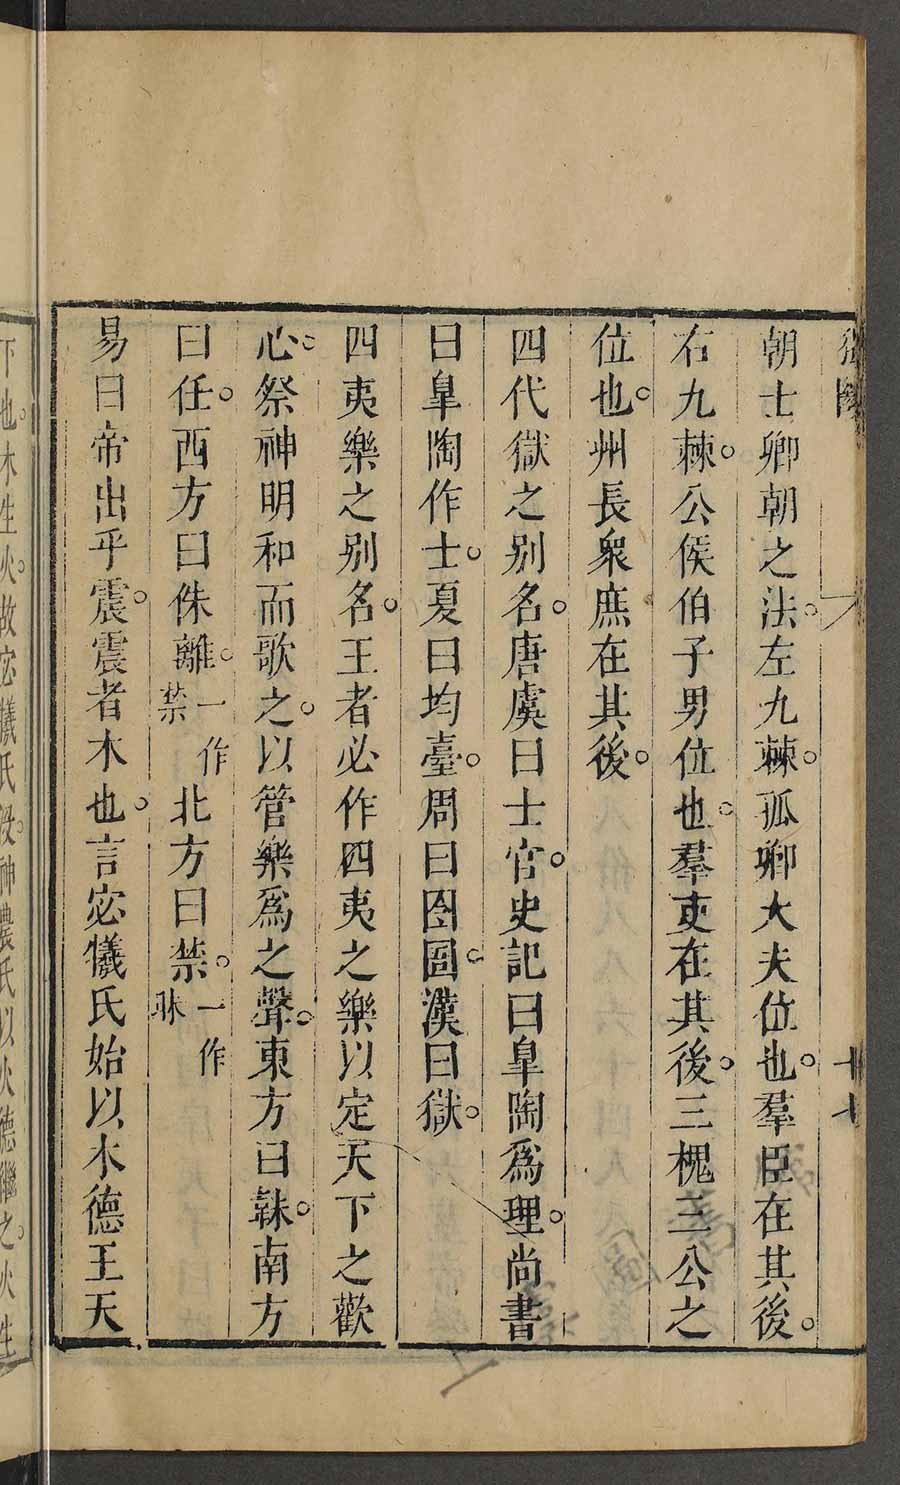 十七
朝士卿朝之法。左九棘。孤卿大夫位也。羣臣在其後。
右九棘。公侯伯子男位也。羣吏在其後。三槐三公之
位也。州長衆庶在其後。
四代獄之别名。唐虞曰士官。史記曰臯陶爲理。尚書
曰臯陶作士。夏曰均臺。周曰囹圄。漢曰獄。
四夷樂之别名。王者必作四夷之樂以定天下之歡
心。祭神明和而歌之。以管樂爲之聲。東方曰韎。南方
曰任。西方曰侏離。一作禁北方曰禁。一作昧
易曰帝出乎震。震者木也。言宓犧氏始以木德王天
下也。木生火。故宓犧氏歿。神農氏以火德繼之。火生